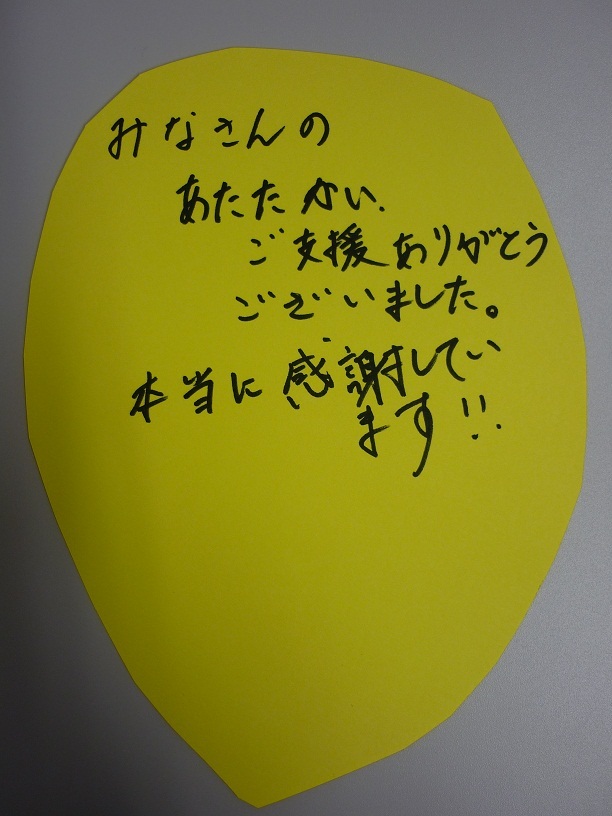 みなさんの
あたたかい
ご支援ありがとう
ございました。
本当に感謝してい
ます!!